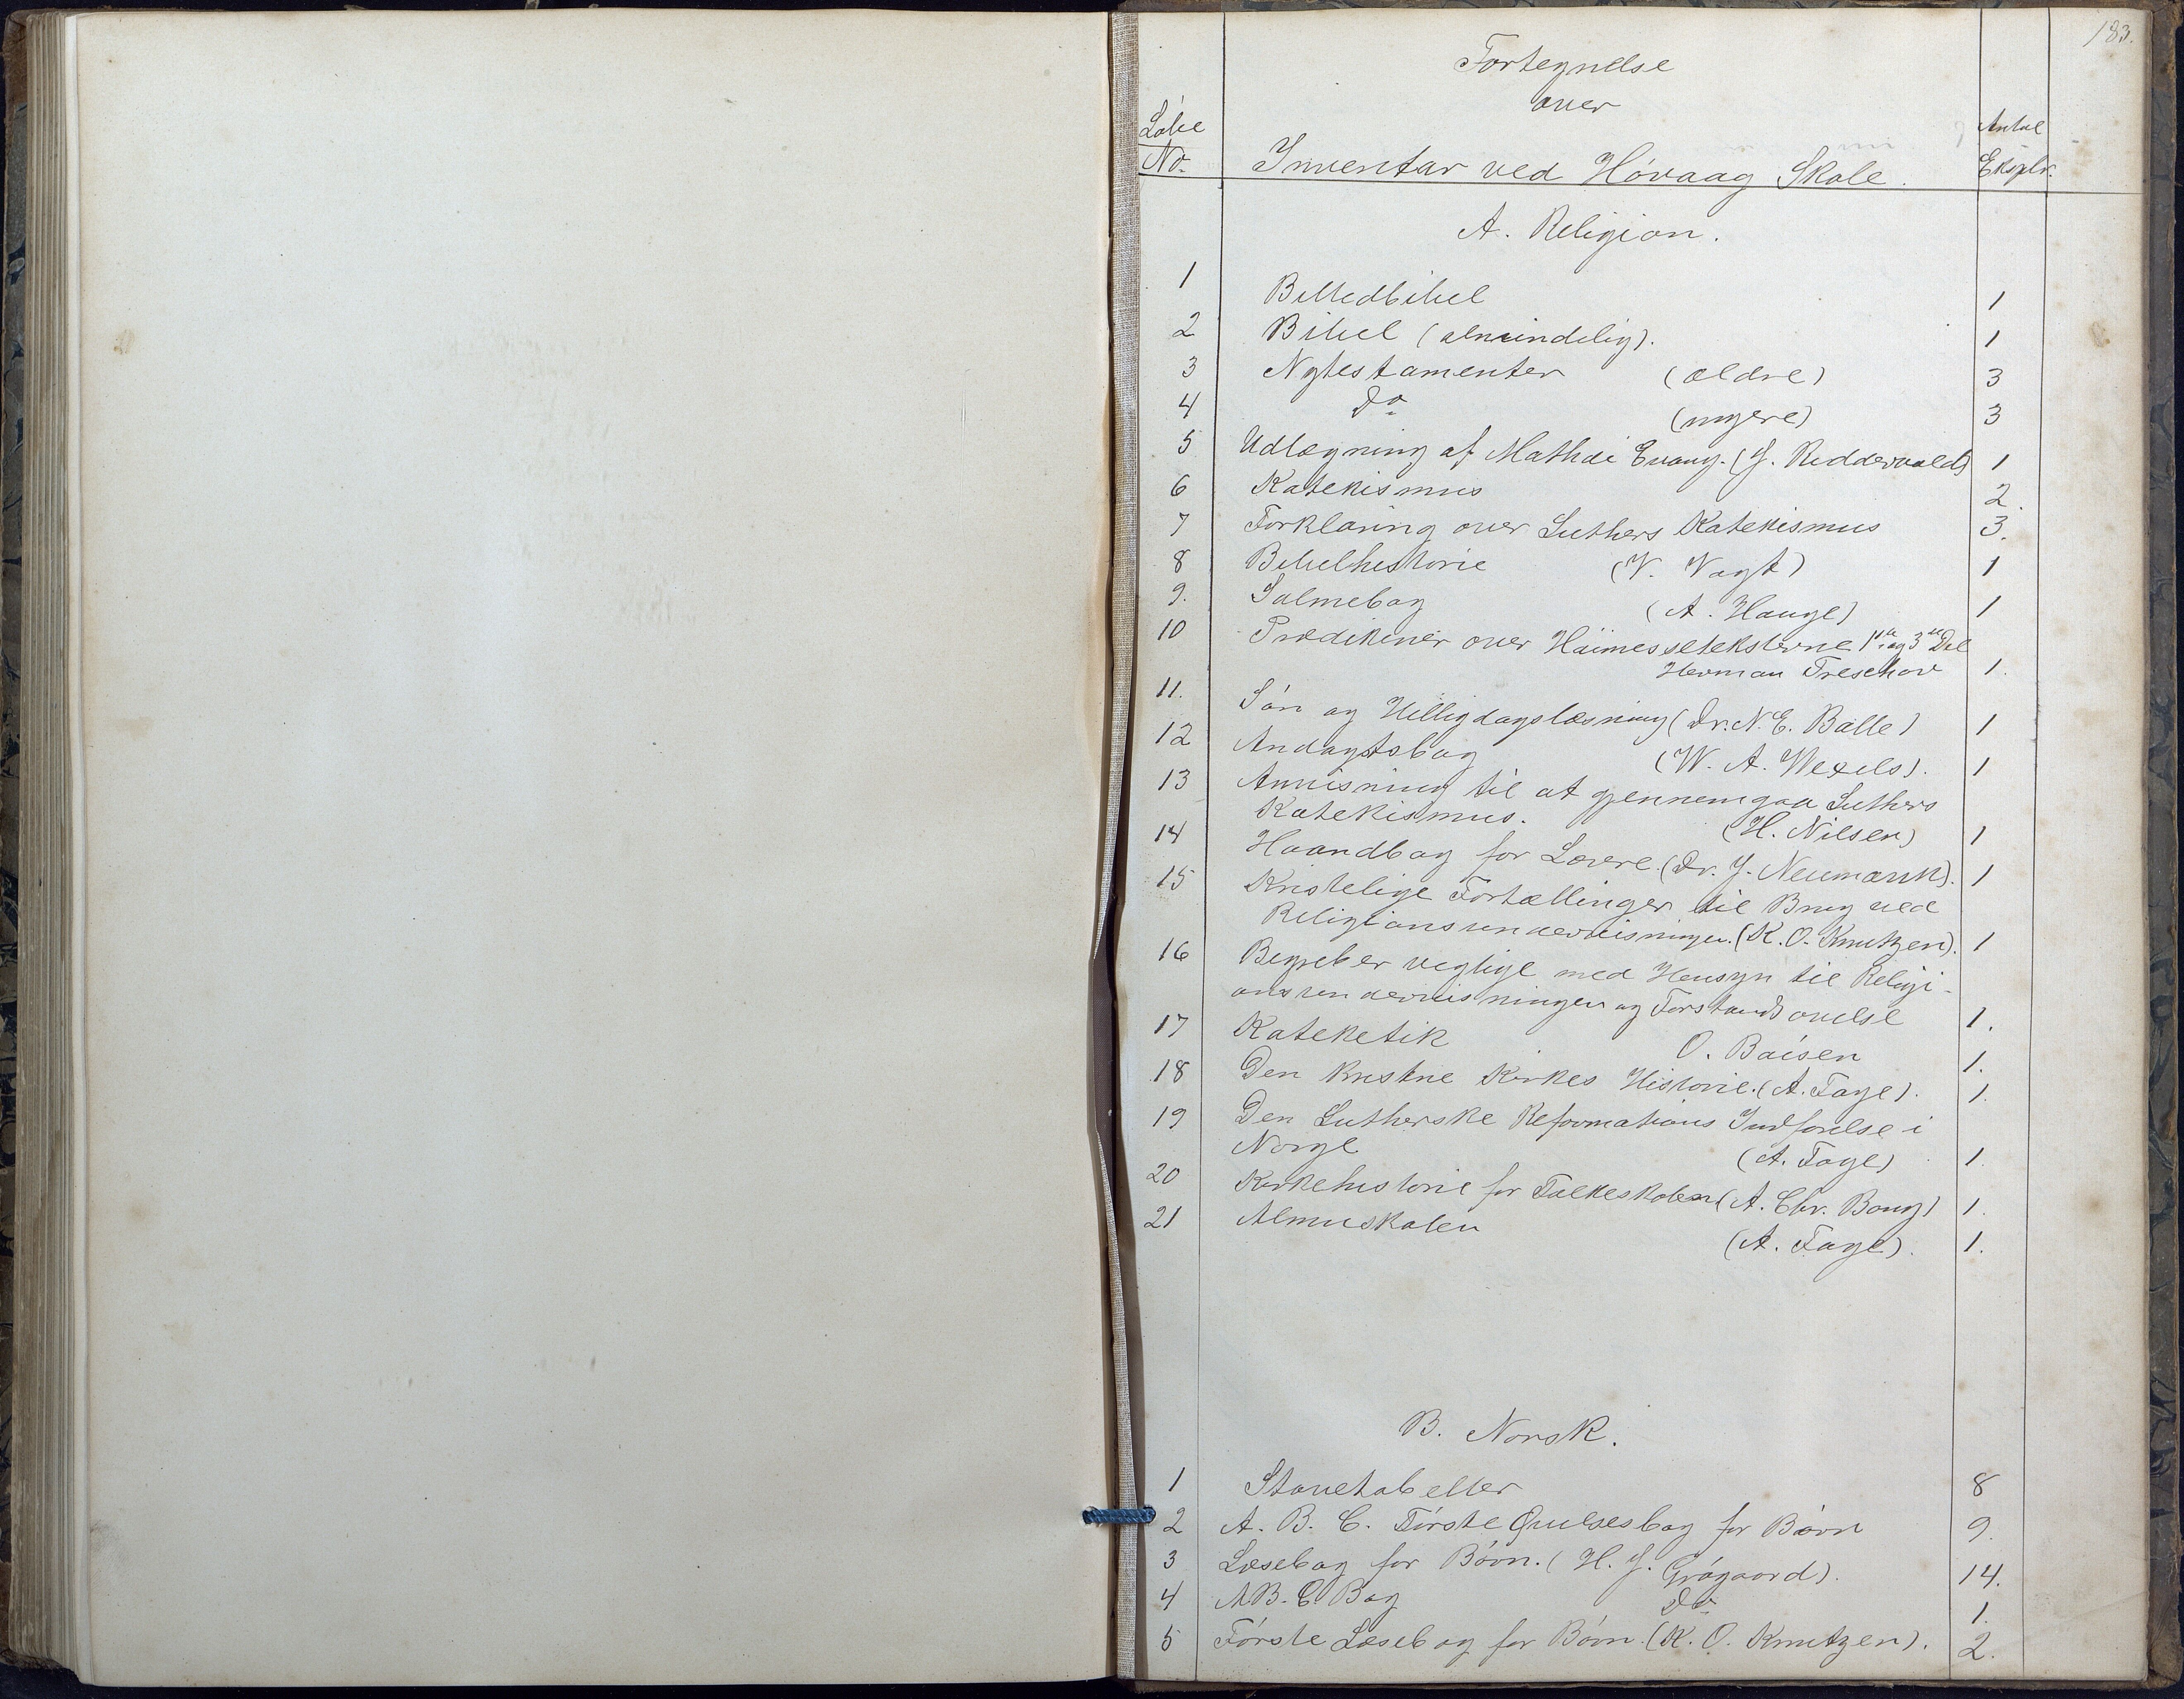 183.
Fortegnelse
over
Løbe No. Inventar ved Høvaag Skole. Antal Eksplr.
A. Religion.
1 Billedbibel 1
2 Bibel (almindelig). 1
3 Nytestamenter (ældre) 3
4 Do (nyere) 3
5 Udlægning af Mathæi Evang. (J. Riddervold) 1
6 Katekismus 2.
7 Forklaring over Luthers Katekismus 3.
8 Bibelhistorie (V. Vogt) 1
9. Salmebog (A. Hauge) 1
10 Prædikener over Høimesseteksterne 1ste og 3die Del
Herman Treschow 1.
11. Søn og Helligdagslæsning (Dr. N. E. Balle) 1
12 Andagtsbog (W. A. Wexels). 1
13 Anvisning til at gjennemgaa Luthers
Katekismus. (H. Nilsen) 1
14 Haandbog for Lærere. (Dr. J. Neumann). 1
15 Kristelige Fortællinger til Brug ved
Religionsundervisningen. (K. O. Knutzen). 1
16 Begreber vigtige med Hensyn til Religi-
onsundervisningen og Forstandsøvelse 1.
17 Kateketik O. Boisen 1.
18 Den kristne Kirkes Historie. (A. Faye). 1.
19 Den Lutherske Reformations Indførelse i
Norge (A. Faye) 1.
20 Kirkehistorie for Folkeskolen (A. Chr. Bang) 1.
21 Almuskolen (A. Faye). 1.
B. Norsk.
1 Stavetabeller 8
2 A. B. C. Første Øvelsesbog for Børn 9.
3 Læsebog for Børn. (H. J. Grøgaard). 14.
4 A B. C. Bog Do 1.
5 Første Læsebog for Børn. (K. O. Knutzen). 2.